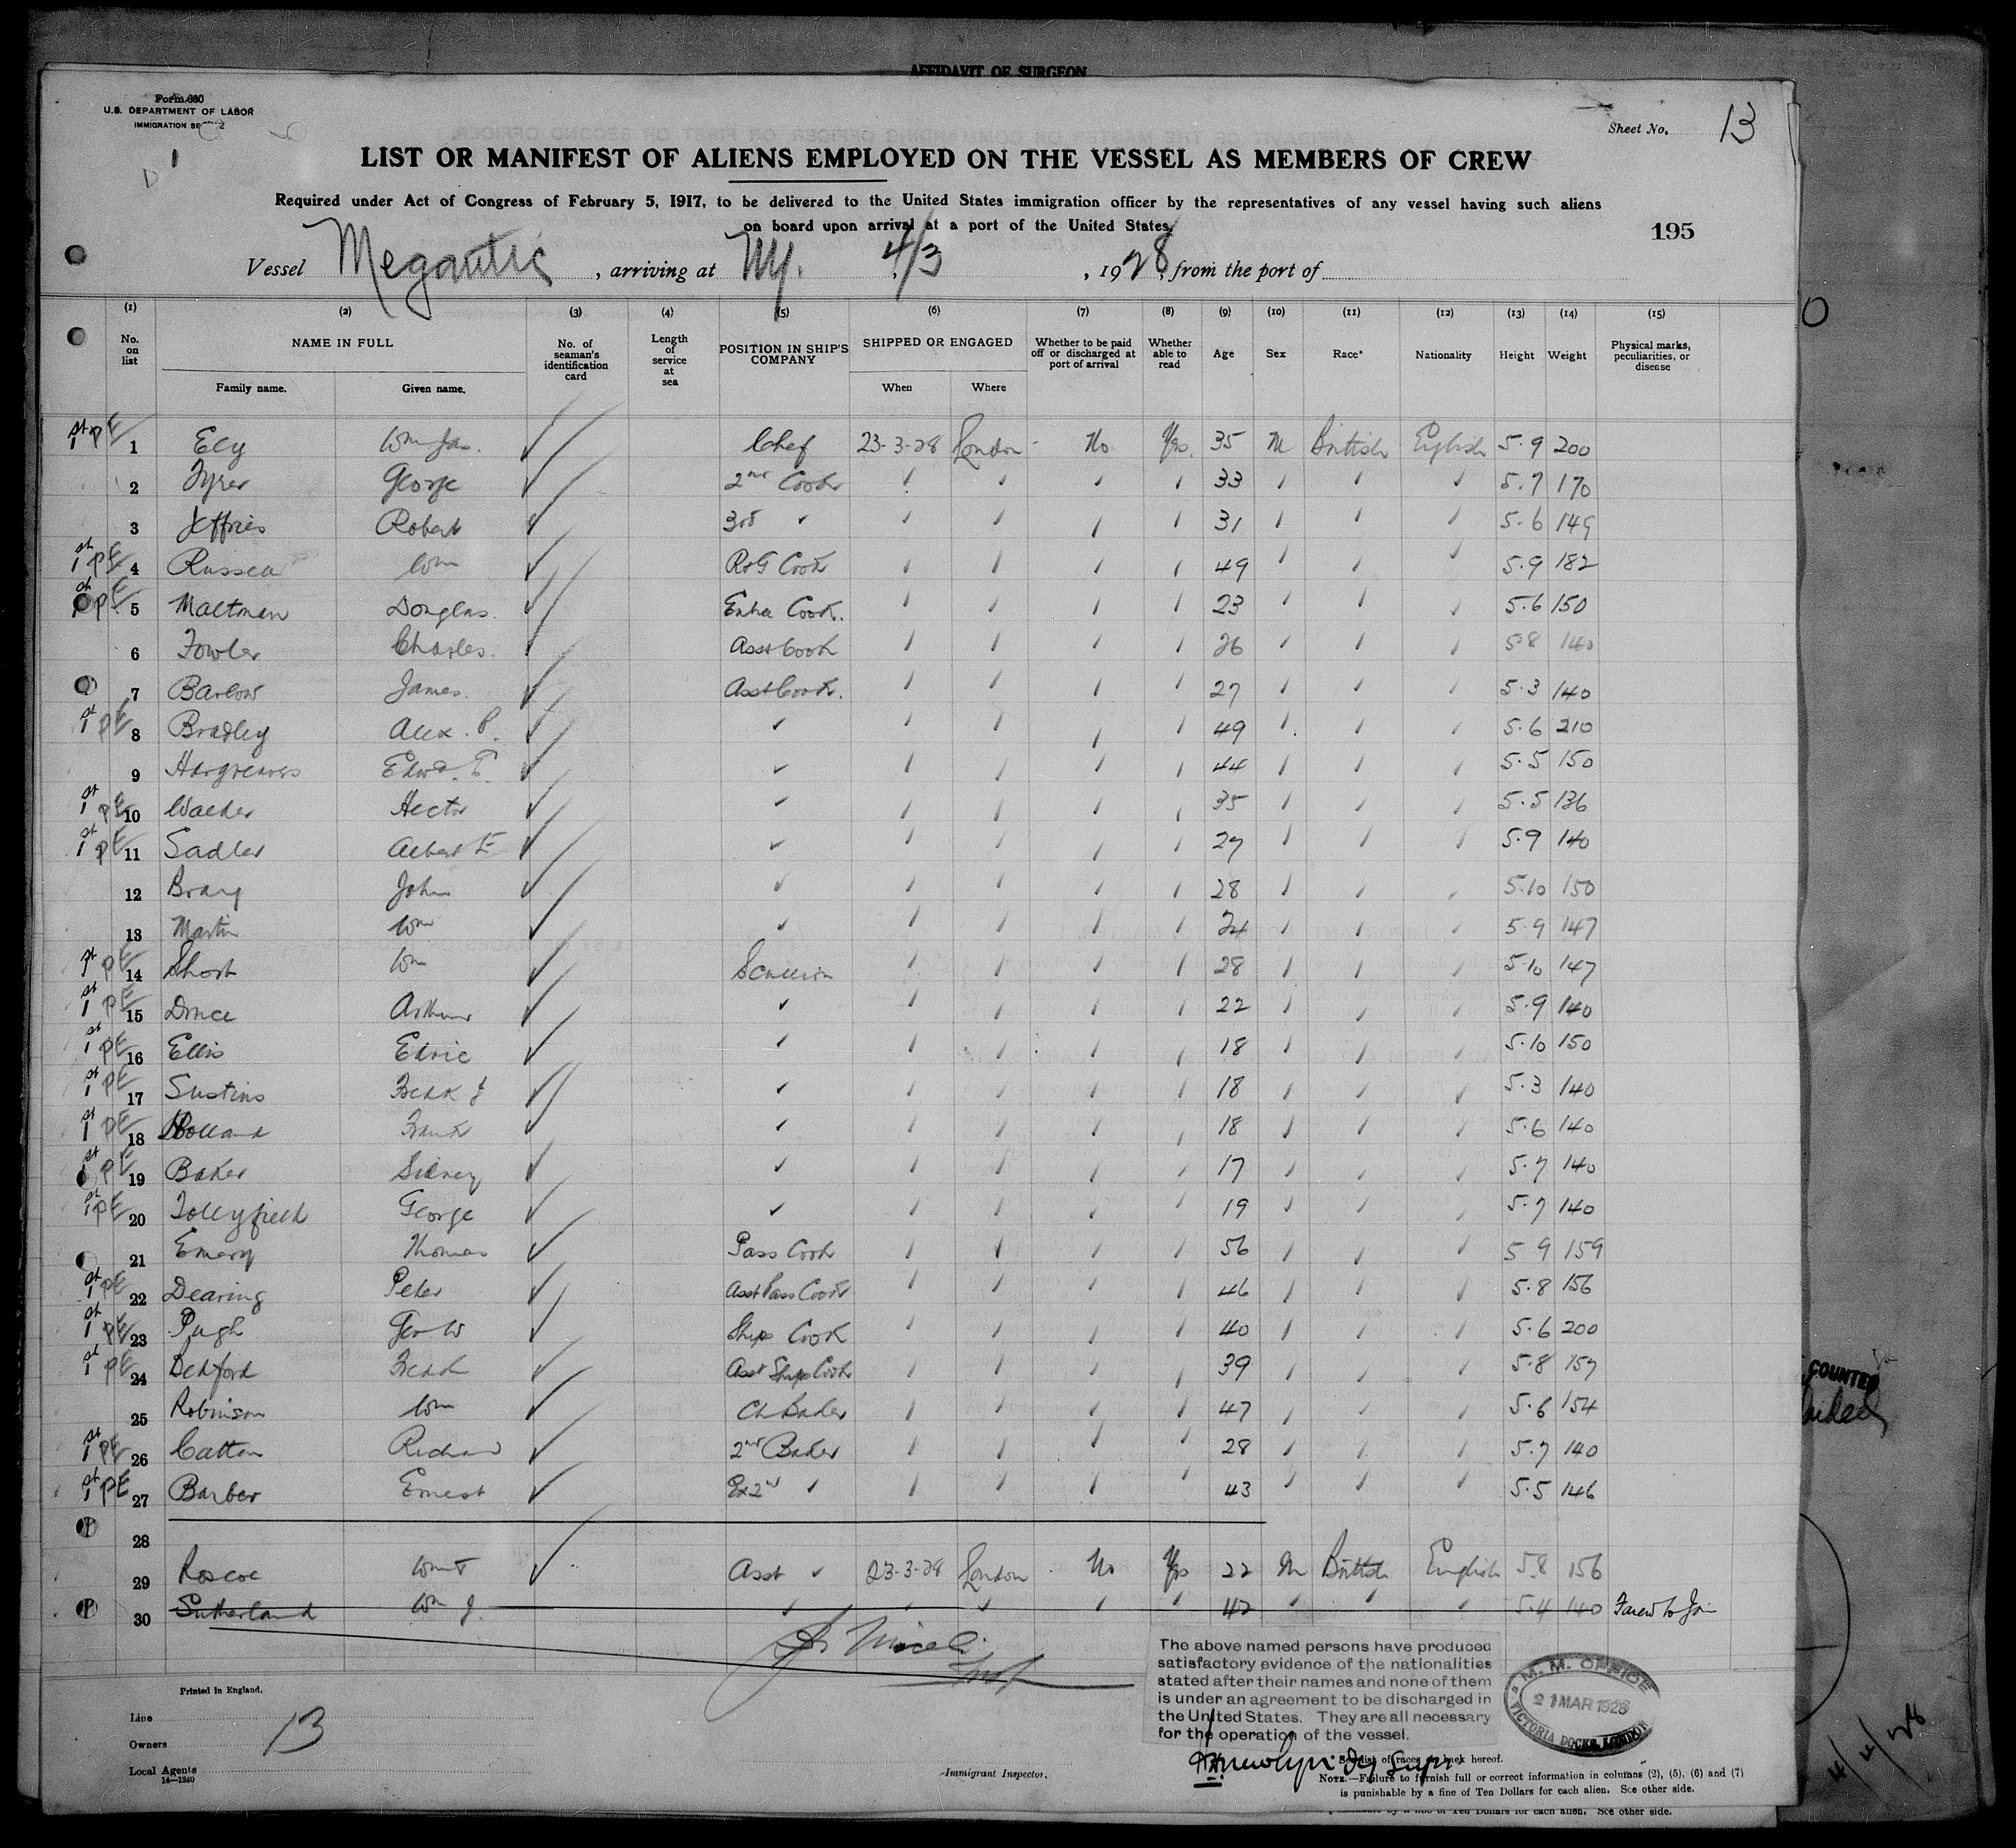 AFFIDAVIT OF SURGEON
Form 680
U.S. DEPARTMENT OF LABOR
IMMIGRATION
Sheet No. 13
LIST OR MANIFEST OF ALIENS EMPLOYED ON THE VESSEL AS MEMBERS OF CREW
Required under Act of Congress of February 5, 1917, to be delivered to the United States immigration officer by the representatives of any vessel having such aliens
on board upon arrival at a port of the United States.
195
Vessel Megantic, arriving at NY. 4/3, 1928, from the port of
(1) (2) (3) (4) (5) (6) (7) (8) (9) (10) (11) (12) (13) (14) (15)
No. on list NAME IN FULL No. of seaman's identification card Length of service at sea POSITION IN SHIP'S COMPANY SHIPPED OR ENGAGED Whether to be paid off or discharged at port of arrival Whether able to read Age Sex Race* Nationality Height Weight Physical marks, peculiarities, or disease
Family name. Given name. When Where
1st PE 1 Ely Wm Jas. ✓ Chef 23-3-28 London No Yes. 35 M British English 5.9 200
2 Tyrer George ✓ 2nd Cook 33 5.7 170
3 Jeffries Robert ✓ 3rd ✓ 31 5.6 149
1st PE 4 Russell Wm ✓ R&G Cook 49 5.9 182
1st PE 5 Maltman Douglas. ✓ Extra Cook. 23 5.6 150
6 Fowler Charles. ✓ Asst Cook 26 5.8 140
7 Barlow James. ✓ Asst Cook. 27 5.3 140
1st PE 8 Bradley Alex. P. ✓ ✓ 49 5.6 210
9 Hargreaves Edwd. T. ✓ ✓ 44 5.5 150
1st PE 10 Walker Hector ✓ ✓ 35 5.5 136
1st PE 11 Sadler Albert E ✓ ✓ 27 5.9 140
12 Bray John ✓ ✓ 28 5.10 150
13 Martin Wm ✓ ✓ 24 5 9 147
1st PE 14 Short Wm ✓ 28 5.10 147
1st PE 15 Arthur ✓ ✓ 22 5.9 140
1st PE 16 Ellis Edric ✓ ✓ 18 5.10 150
1st PE 17 Sustins Fredk J ✓ ✓ 18 5.3 140
1st PE 18 Holland Frank ✓ ✓ 18 5.6 140
1st PE 19 Baker Sidney ✓ ✓ 17 5.7 140
1st PE 20 Follyfield George ✓ ✓ 19 5.7 140
21 Emery Thomas ✓ Pass Cook 56 5 9 159
1st PE 22 Dearing Peter ✓ Asst Pass Cook 46 5.8 156
1st PE 23 Pugh Geo W ✓ Ships Cook 40 5.6 200
1st PE 24 Bedford Fredk ✓ Asst Ships Cook 39 5.8 157
25 Robinson Wm ✓ Ch Baker 47 5.6 154
1st PE 26 Catton Richard ✓ 2nd Baker 28 5.7 140
1st PE 27 Barber Ernest ✓ Ex 2nd ✓ 43 5.5 146
28
29 Roscoe Wm T ✓ Asst ✓ 23-3-28 London No Yes 22 M British English 5.8 156
30 Sutherland Wm J. 42 5.4 140 Failed to Join
The above named persons have produced
satisfactory evidence of the nationalities
stated after their names and none of them
is under an agreement to be discharged in
the United States. They are all necessary
for the operation of the vessel.
M. M. OFFICE
21 MAR 1928
VICTORIA DOCKS, LONDON
Printed in England.
Line
Owners 13
Local Agents
14—1240
Immigrant Inspector.
See list of races on back hereof.
NOTE.—Failure to furnish full or correct information in columns (2), (5), (6) and (7)
is punishable by a fine of Ten Dollars for each alien. See other side.
punishable by a fine of Ten Dollars for each alien. See other side.
COUNTED
4/4/28